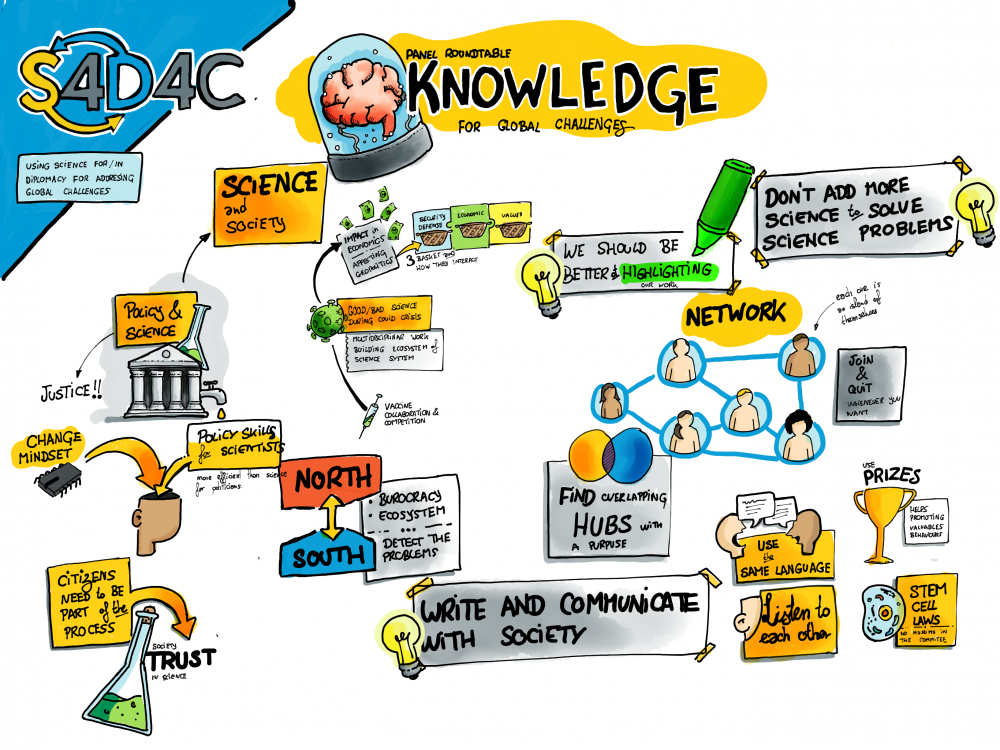 S4D4C
USING SCIENCE FOR/IN
DIPLOMACY FOR ADDRESING
GLOBAL CHALLENGES
PANEL ROUNDTABLE
KNOWLEDGE
FOR GLOBAL CHALLENGES
SCIENCE
and
SOCIETY
POLICY &
SCIENCE
JUSTICE!!
IMPACT in
ECONOMICS
AFFECTING
GEOPOLITICS
SECURITY
DEFENSE
ECONOMIC
VALUES
3 BASKET and
HOW THEY INTERACT
GOOD/BAD SCIENCE
DURING COVID CRISIS
MULTIDISCIPLINAR WORK
BUILDING ECOSYSTEM of
SCIENCE SYSTEM
VACCINE
COLLABORATION &
COMPETITION
CHANGE
MINDSET
POLICY SKILLS
for SCIENTISTS
more efficient than science
for politicians
NORTH
SOUTH
• BUROCRACY
• ECOSYSTEM
...
DETECT THE
PROBLEMS
CITIZENS
NEED to BE
PART of the
PROCESS
SOCIETY
TRUST
IN SCIENCE
WE SHOULD BE
BETTER @ HIGHLIGHTING
OUR WORK
DON'T ADD MORE
SCIENCE to SOLVE
SCIENCE PROBLEMS
NETWORK
each one is
an island of
themselves
JOIN
&
QUIT
WHENEVER YOU
WANT
FIND OVERLAPPING
HUBS WITH
A PURPOSE
USE
PRIZES
HELPS
PROMOTING
VALUABLES
BEHAVIOURS
USE
the
SAME LANGUAGE
Listen to
each other
STEM
CELL
LAWS
IN
THE COMMITEE
WRITE AND COMMUNICATE
WITH SOCIETY